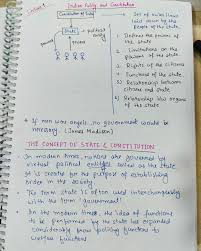 Lecture 1
Indian Polity and Constitution
Constitution of India
State
political entity
powers
people
Set of rules/laws
laid down by the
people of the state
1. Define the powers of
the state
2. Limitations on the
powers of the state
3. Rights of the citizens
4. Functions of the state
5. Relationship between
citizens and state
6. Relationship b/w organs
of the state
* If men were angels, no government would be
necessary. (James Madison)
THE CONCEPT OF STATE & CONSTITUTION
* In modern times, nations are governed by
political entities called as the state
It is created for the purpose of establishing
order in the society
* The term state is often used interchangeably
with the term 'government'
* In the modern times, the idea of functions
to be performed by the state has expanded
considerably from policing functions to
welfare functions